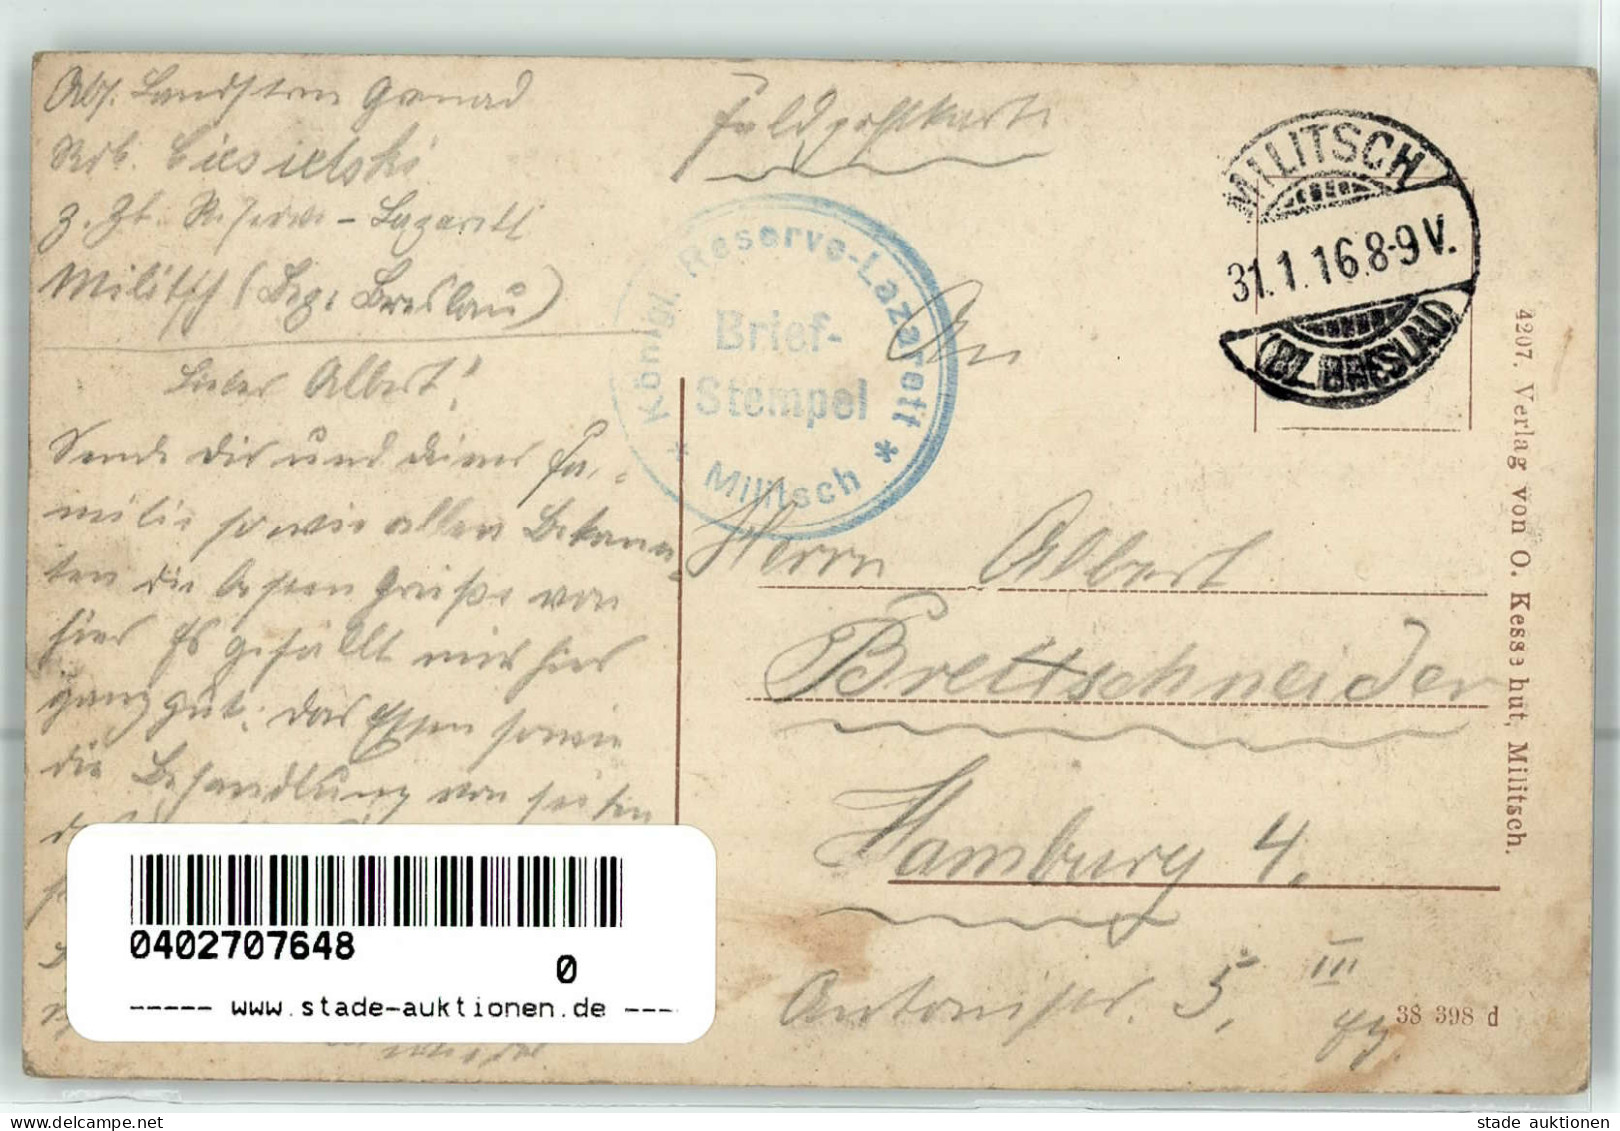 Abs. Landstrm Grenad
Rob. Ciesielski
z. Zt. Reserve-Lazarett
Militsch (Bez: Breslau)
Lieber Albert!
Sende Dir und deiner Fa-
milie sowie allen Bekann-
ten die besten Grüße von
hier Es gefällt mir hier
ganz gut. das Essen sowie
die Behandlung von seiten
wieder
0402707648
0
----- www.stade-auktionen.de ----
Feldpostkarte
Königl. Reserve-Lazarett
Brief-
Stempel
* Militsch *
MILITSCH
31.1.16.8-9V.
(BZ. BRESLAU)
An
Herrn Albert
Brettschneider
Hamburg 4.
Antonistr. 5, III
4207. Verlag von O. Kessehut, Militsch.
38 398 d
stade auktionen